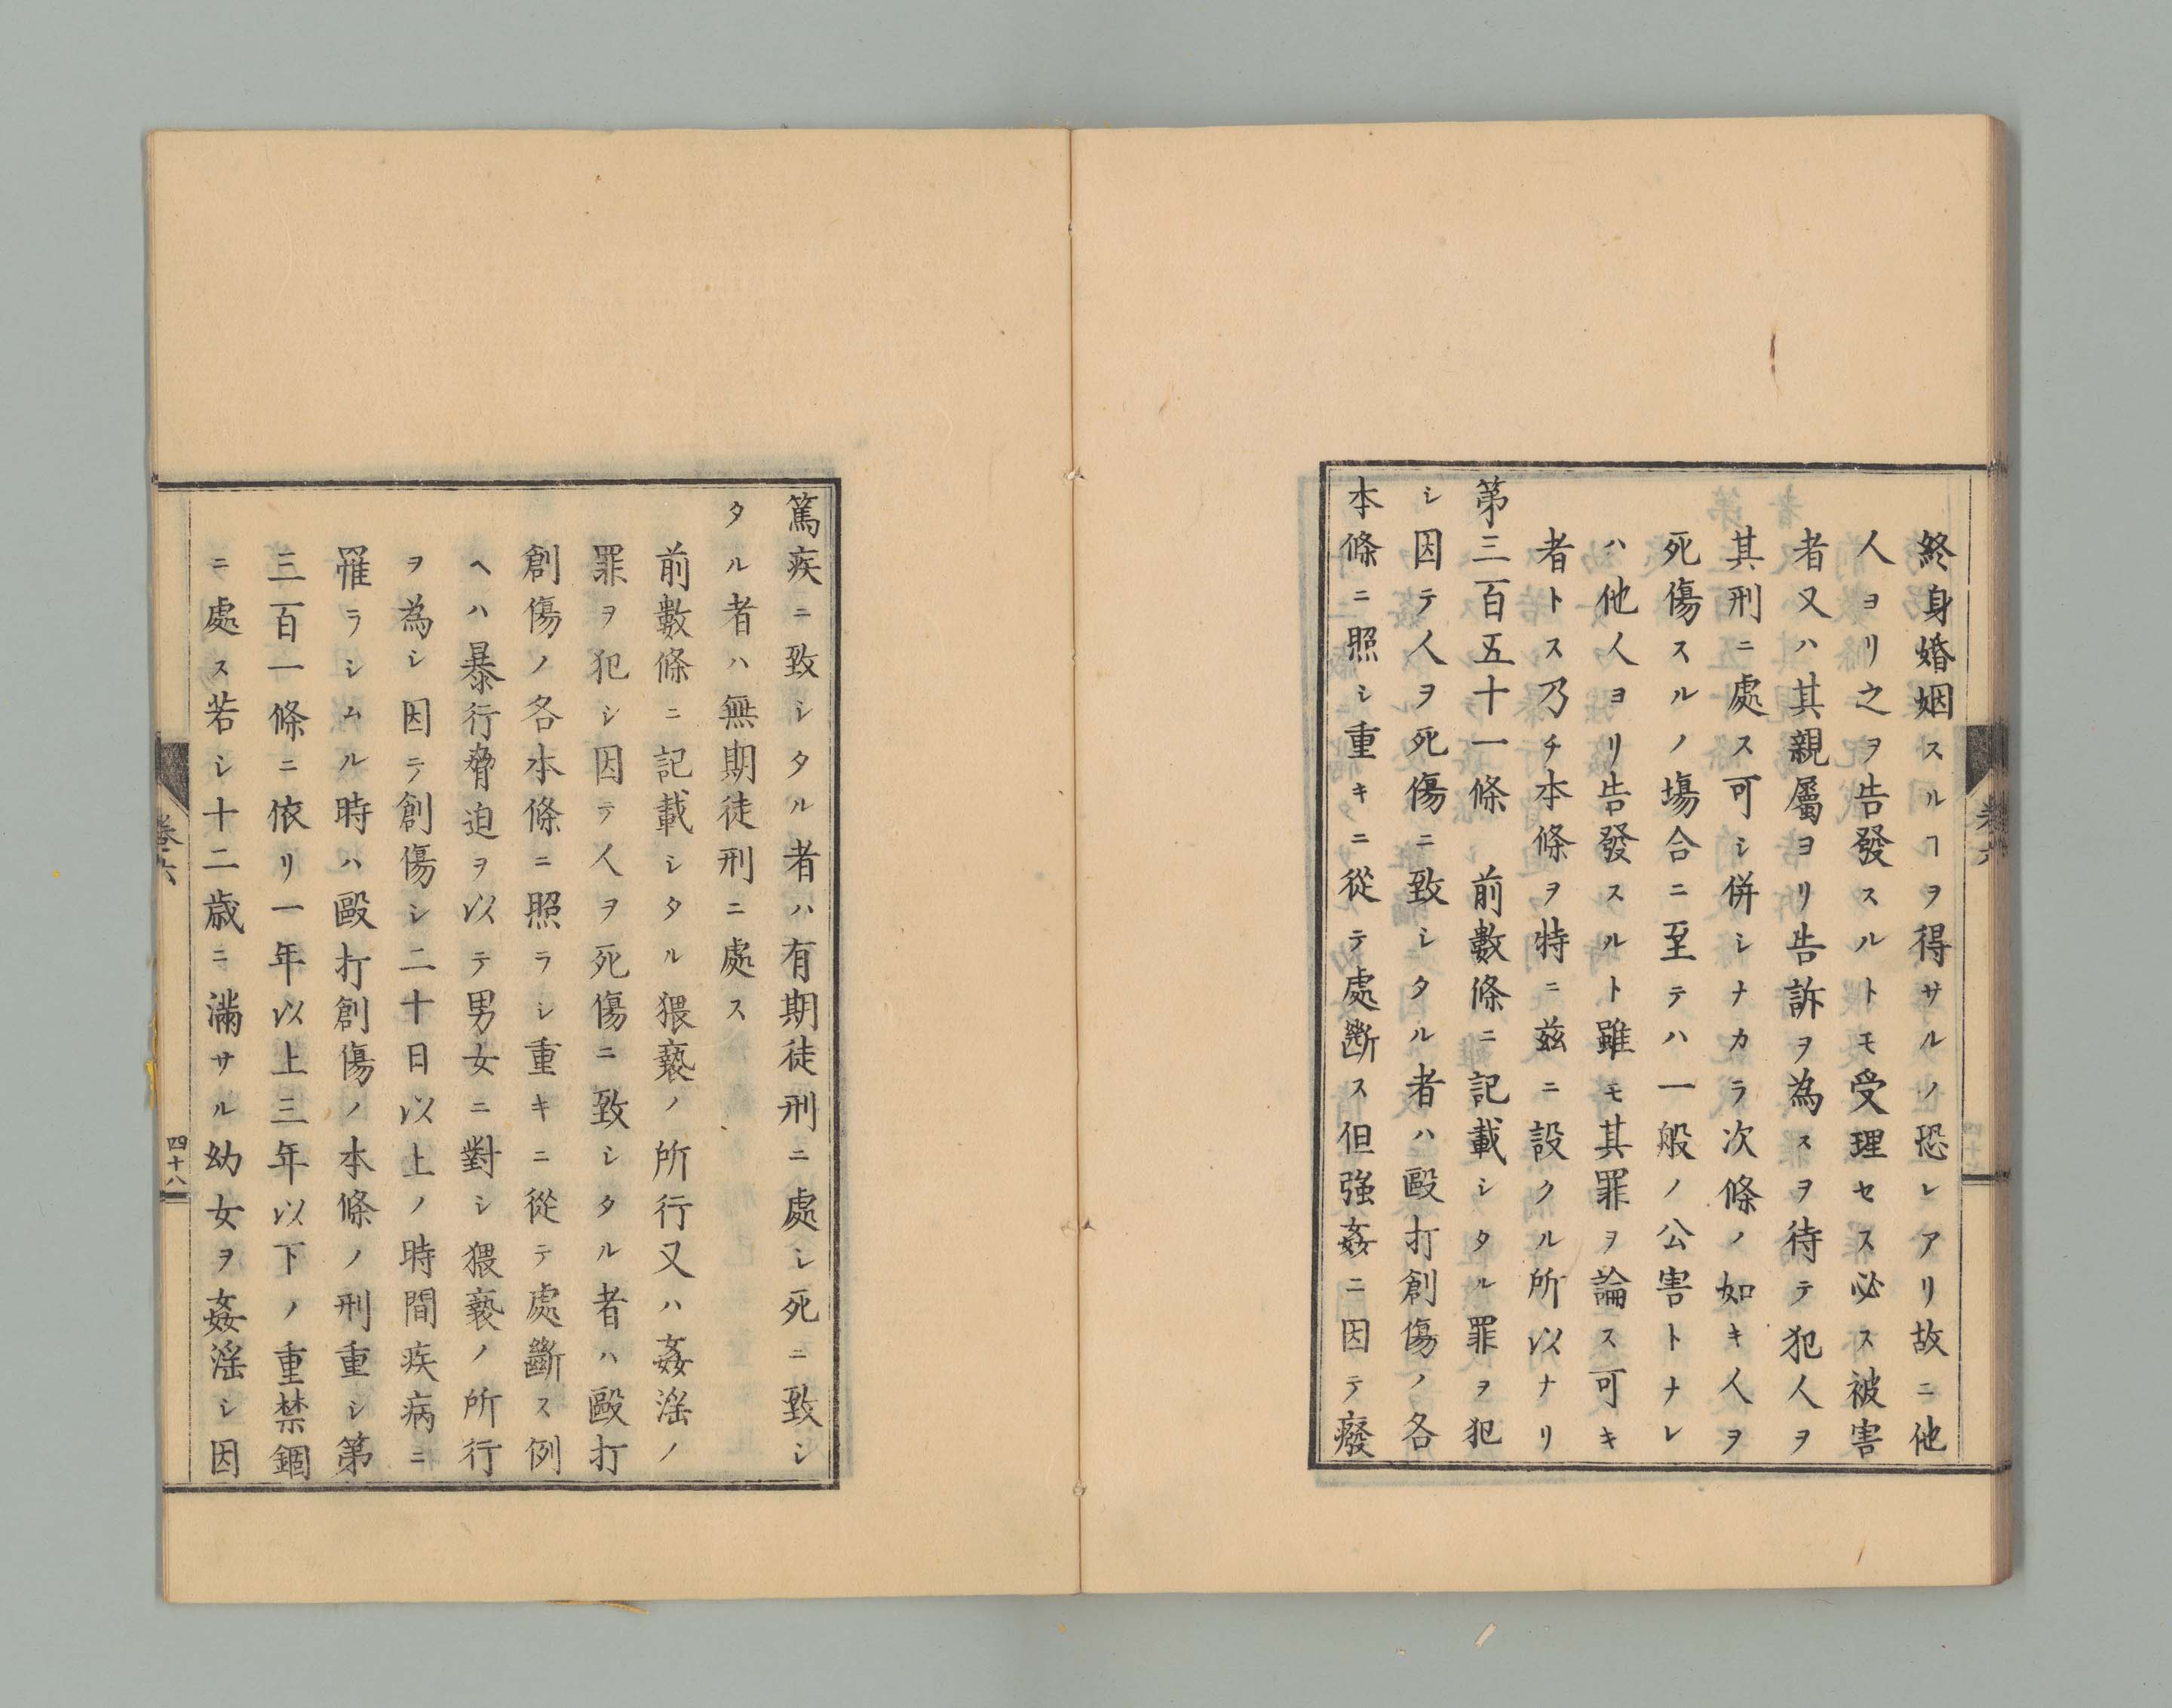 終身婚姻スルヿヲ得サルノ恐レアリ故ニ他
人ヨリ之ヲ告發スルトモ受理セス必ス被害
者又ハ其親屬ヨリ告訴ヲ為スヲ待テ犯人ヲ
其刑ニ處ス可シ併シナカラ次條ノ如キ人ヲ
死傷スルノ塲合ニ至テハ一般ノ公害トナレ
ハ他人ヨリ告發スルト雖モ其罪ヲ論ス可キ
者トス乃チ本條ヲ特ニ茲ニ設クル所以ナリ
第三百五十一條 前數條ニ記載シタル罪ヲ犯
シ因テ人ヲ死傷ニ致シタル者ハ毆打創傷ノ各
本條ニ照シ重キニ從テ處斷ス但強姦ニ因テ癈
卷六
篤疾ニ致シタル者ハ有期徒刑ニ處シ死ニ致シ
タル者ハ無期徒刑ニ處ス
前數條ニ記載シタル猥褻ノ所行又ハ姦淫ノ
罪ヲ犯シ因テ人ヲ死傷ニ致シタル者ハ毆打
創傷ノ各本條ニ照ラシ重キニ從テ處斷ス例
ヘハ暴行脅迫ヲ以テ男女ニ對シ猥褻ノ所行
ヲ為シ因テ創傷シ二十日以上ノ時間疾病ニ
罹ラシムル時ハ毆打創傷ノ本條ノ刑重シ第
三百一條ニ依リ一年以上三年以下ノ重禁錮
ニ處ス若シ十二歳ニ滿サル幼女ヲ姦淫シ因
卷六
四十八